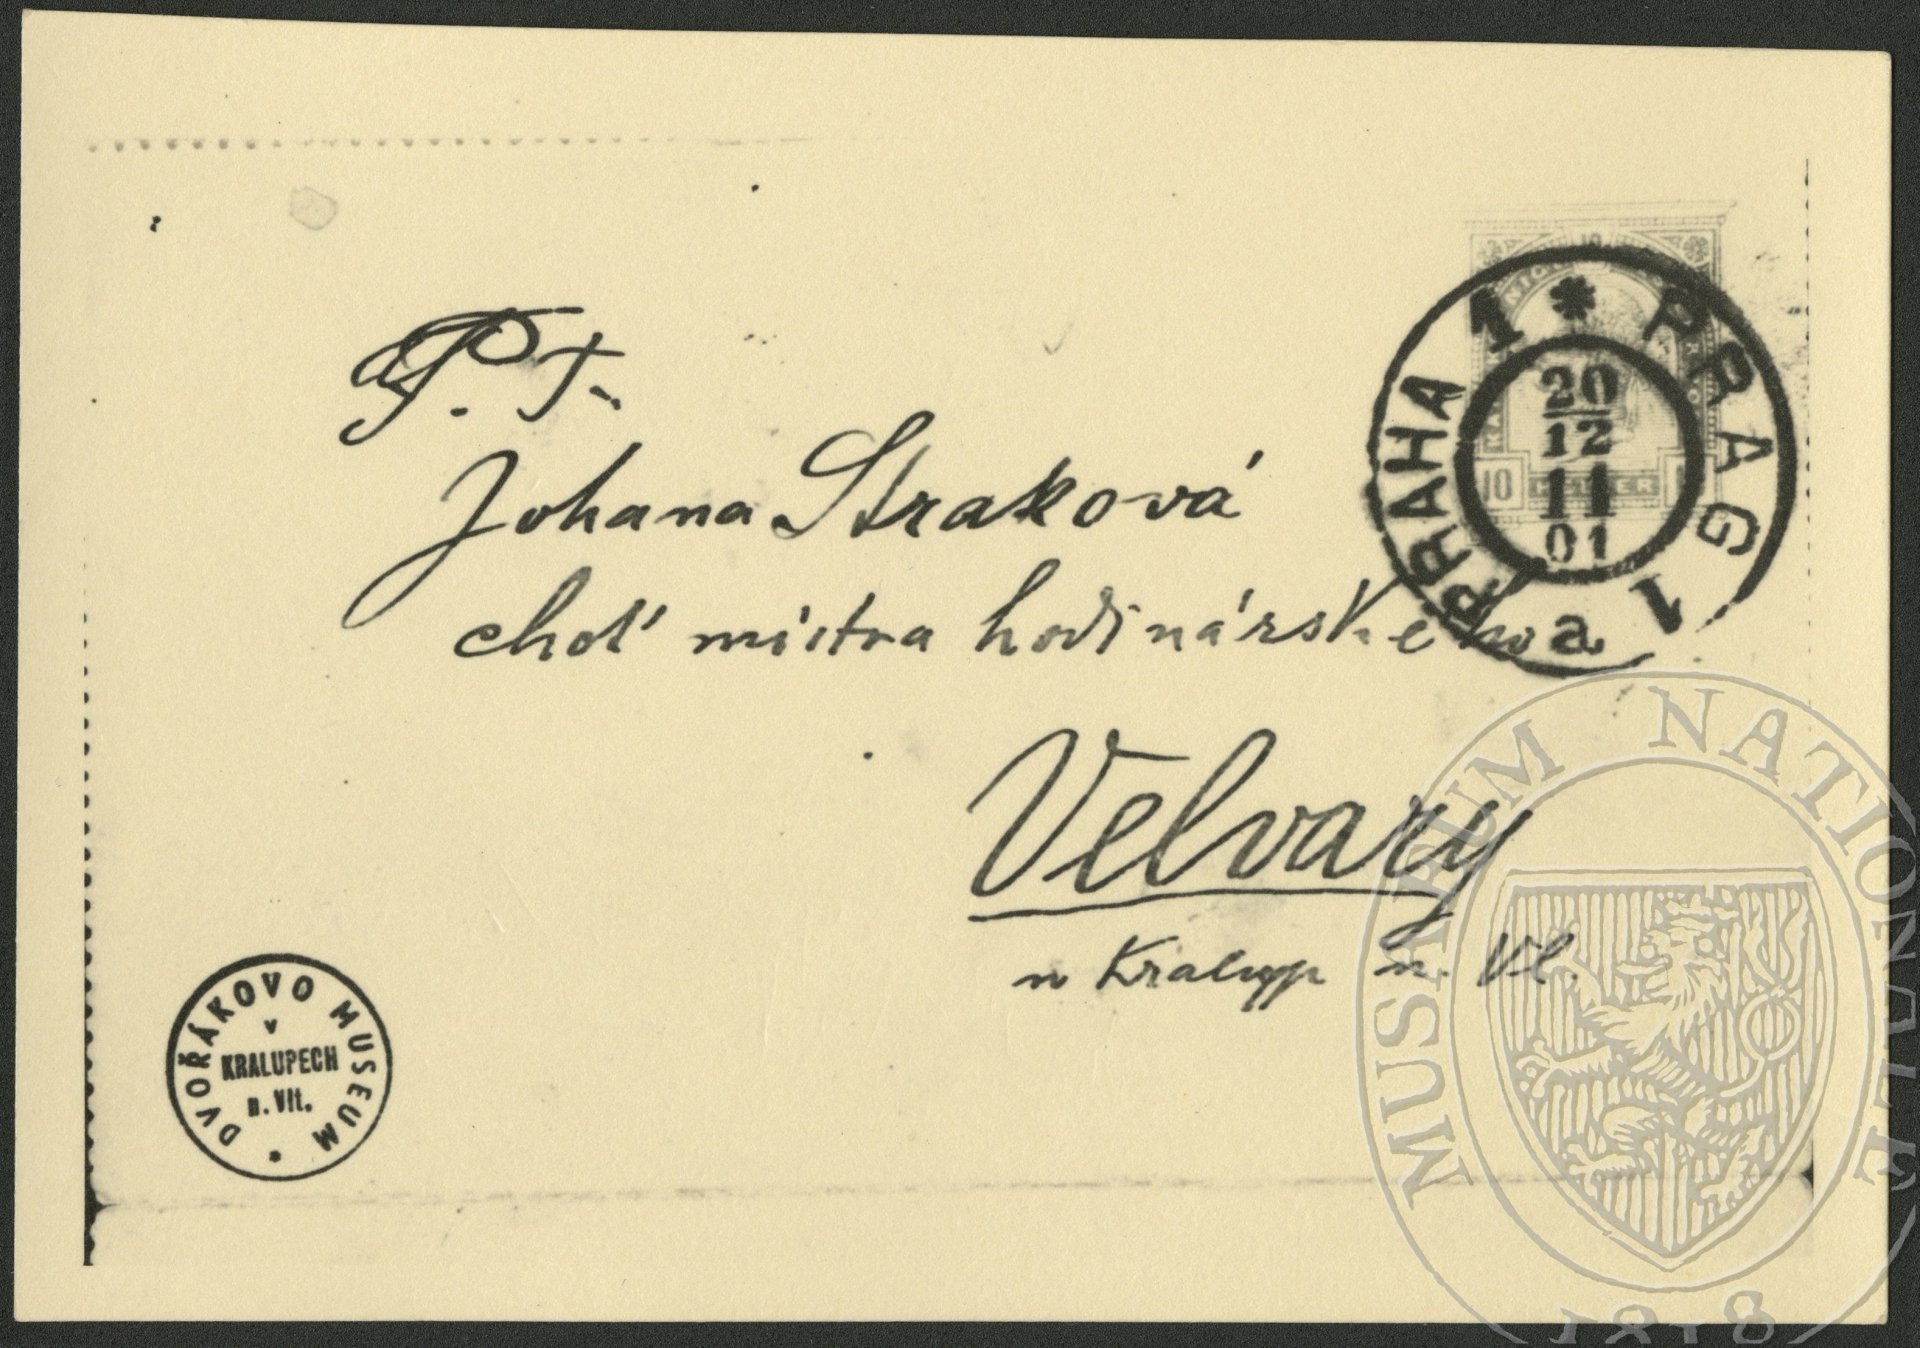 P. T.
Johana Straková
choť mistra hodinářského
Velvary
u Kralup n. Vl.
PRAHA 1 * PRAG 1
20
12
11
01
a
10
DVOŘÁKOVO MUSEUM
v
KRALUPECH
n. Vlt.
MUSAEUM NATIONALE
1818